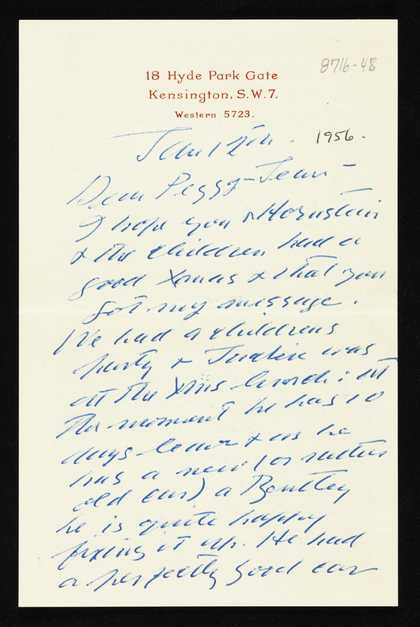 8716-48
18 Hyde Park Gate
Kensington, S.W.7.
Western 5723.
1956.
Dear Peggy-Jean -
I hope you & Hornstein
& the children had a
good Xmas & that you
got my message.
I've had a childrens
party & Jackie was
at the Xms : at
the moment he has 10
days leave & as he
has a new (or rather
old car) a Bentley
he is quite happy
fixing it up. He had
a perfectly good car